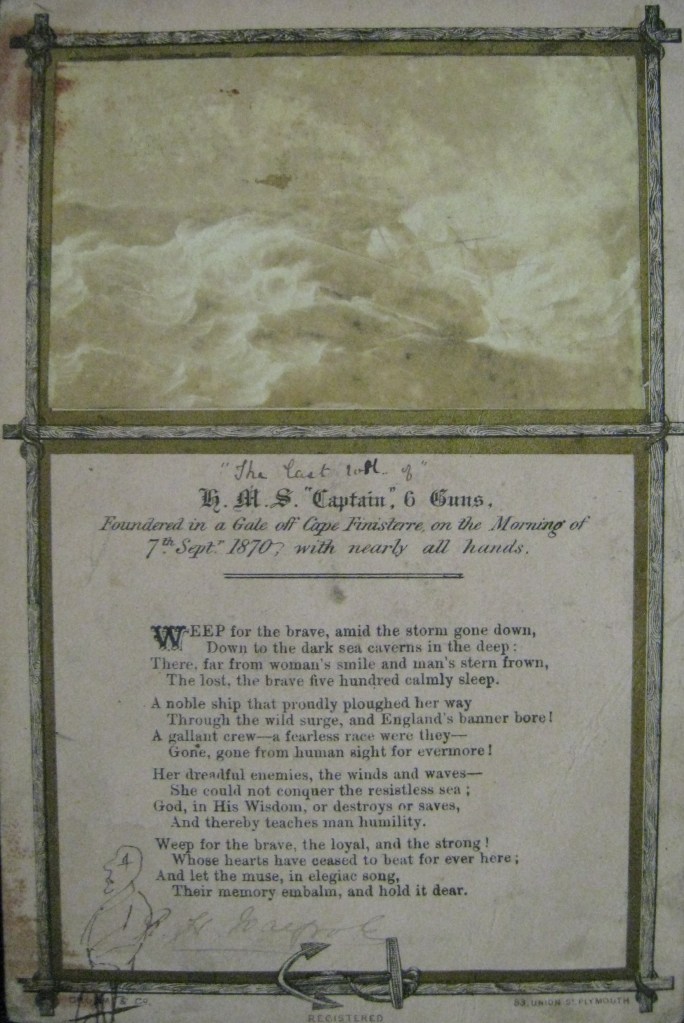 "The last                of"
H. M. S. "Captain", 6 Guns.
Foundered in a Gale off Cape Finisterre, on the Morning of
7th Septr. 1870, with nearly all hands.
WEEP for the brave, amid the storm gone down,
Down to the dark sea caverns in the deep:
There, far from woman's smile and man's stern frown,
The lost, the brave five hundred calmly sleep.
A noble ship that proudly ploughed her way
Through the wild surge, and England's banner bore!
A gallant crew—a fearless race were they—
Gone, gone from human sight for evermore!
Her dreadful enemies, the winds and waves—
She could not conquer the resistless sea;
God, in His Wisdom, or destroys or saves,
And thereby teaches man humility.
Weep for the brave, the loyal, and the strong!
Whose hearts have ceased to beat for ever here;
And let the muse, in elegiac song,
Their memory embalm, and hold it dear.
& CO.
53, UNION ST. PLYMOUTH
REGISTERED